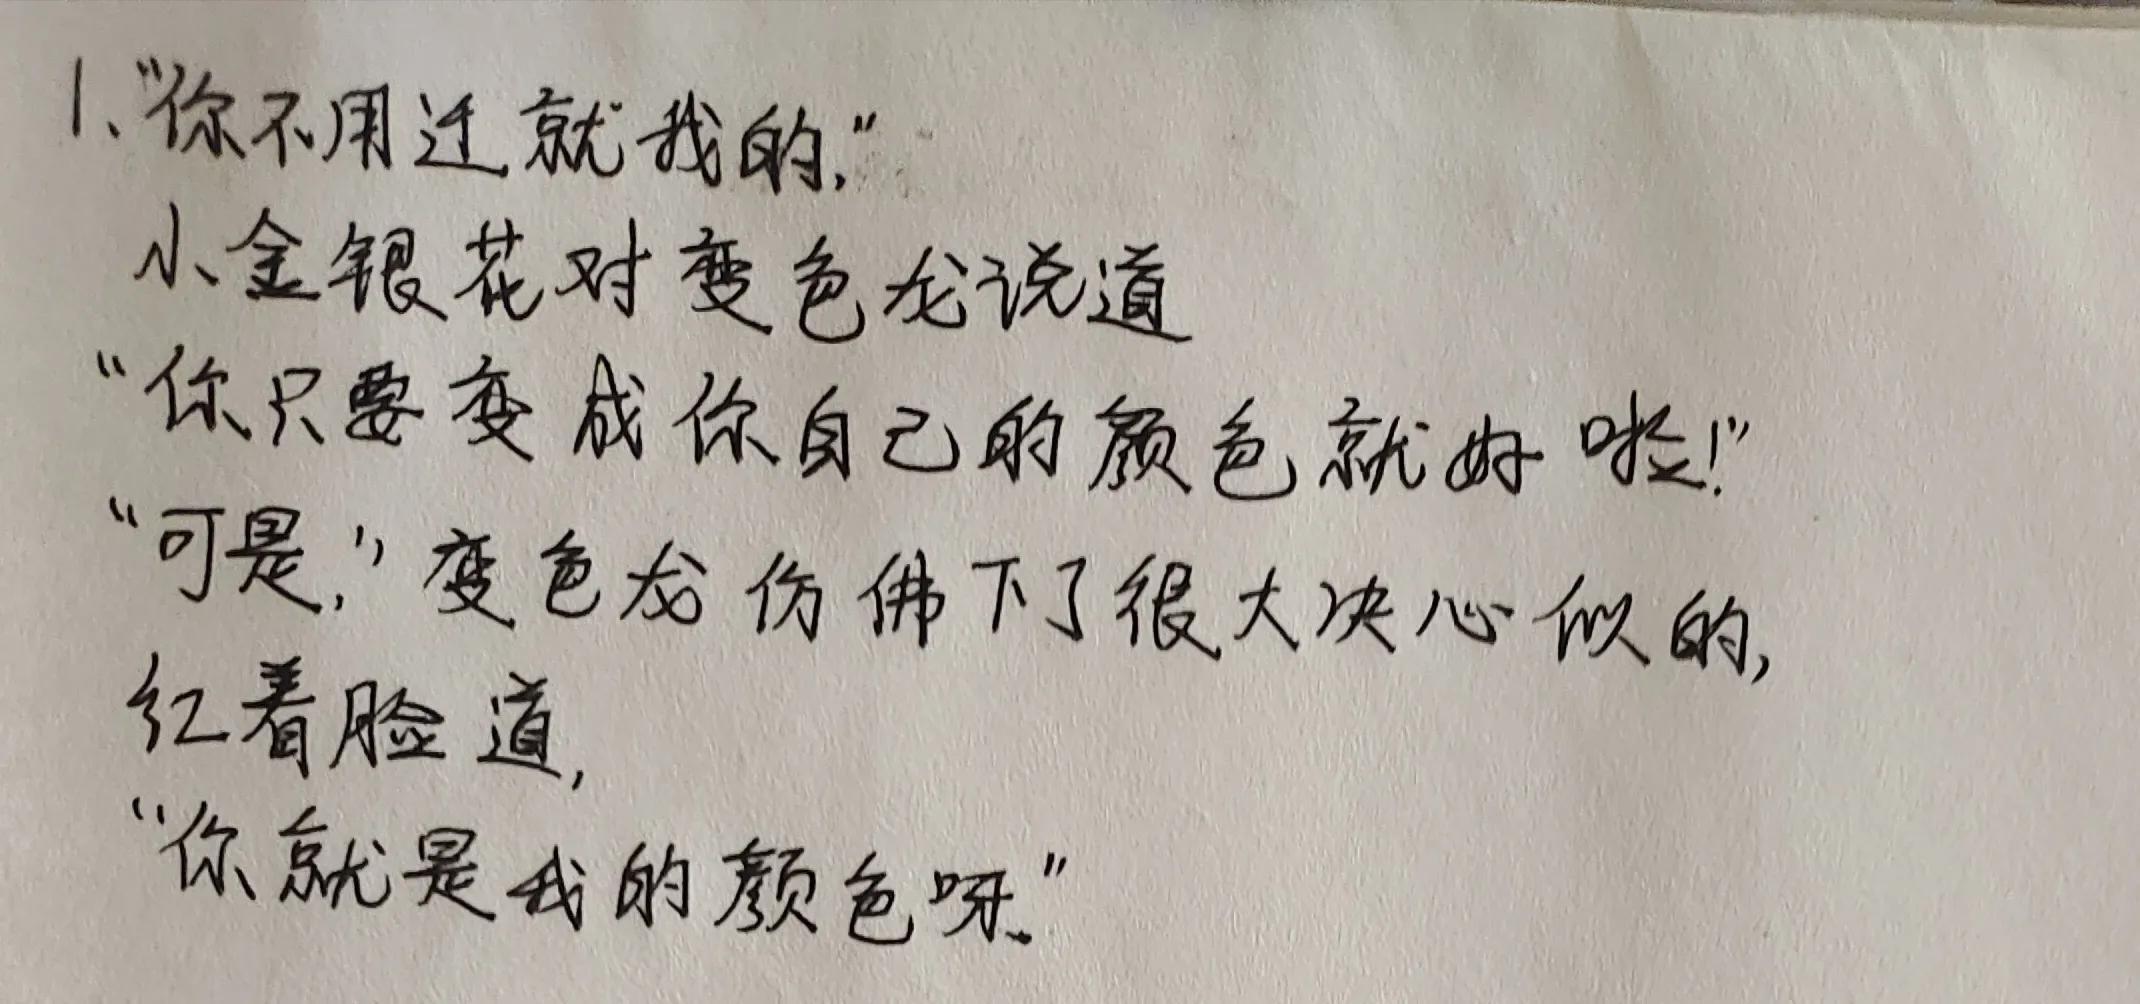 1、“你不用迁就我的,”
小金银花对变色龙说道
“你只要变成你自己的颜色就好啦!”
“可是,”变色龙仿佛下了很大决心似的,
红着脸道,
“你就是我的颜色呀.”